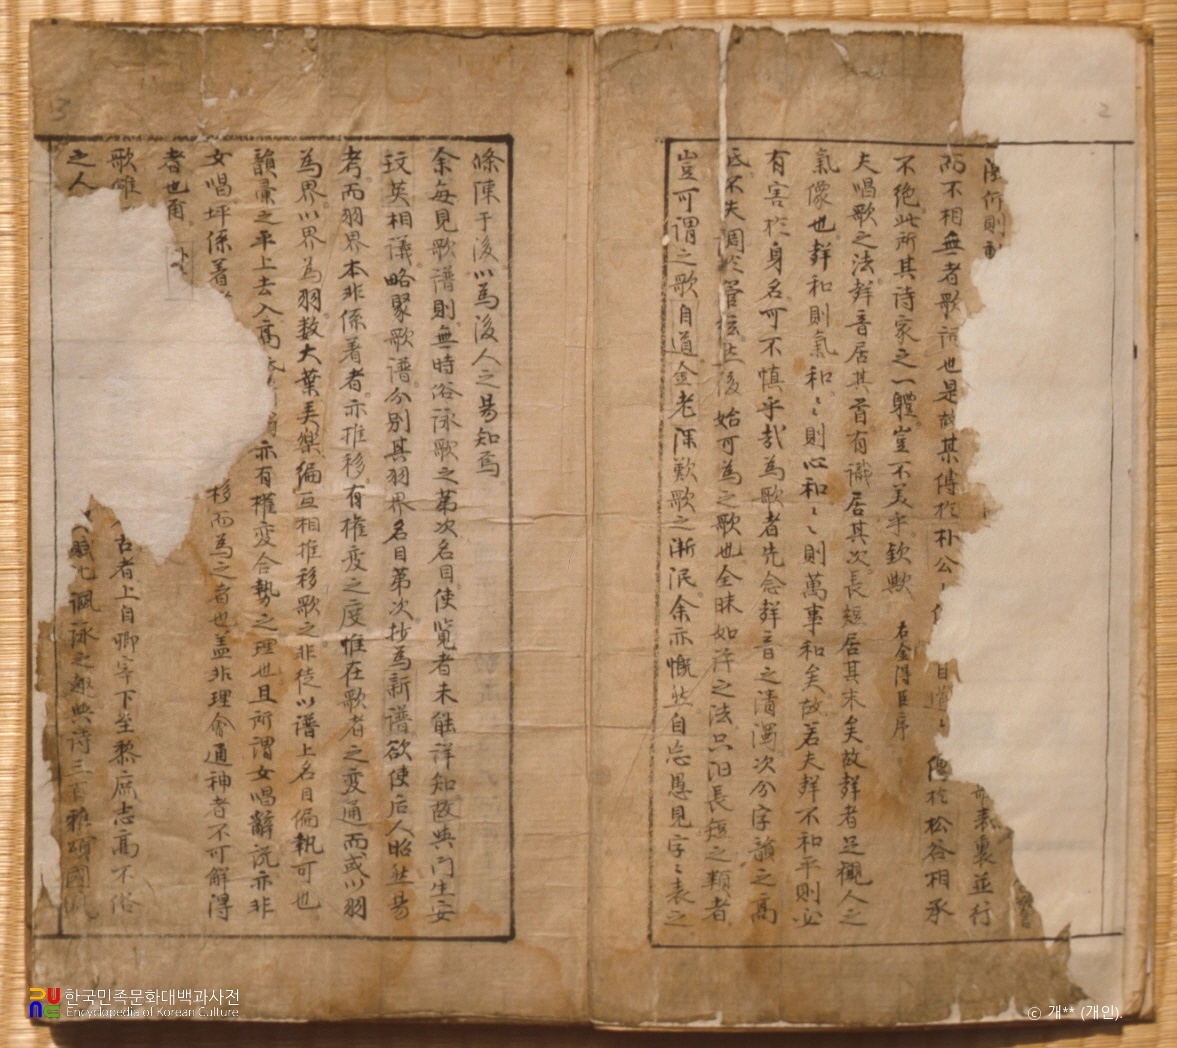 2
何則
而不相無者歌 也是故其傳於朴公
表裏並行
傳於松谷相承
不絶此所其詩家之一軆豈不美乎欽歟 右金得臣序
夫唱歌之法群音居其首有識居其次長短居其末矣故群者足觀人之
氣像也群和則氣和〻則心和〻則萬事和矣故若夫群不和平則必
有害於身名可不慎乎哉為歌者先念群音之清濁次分字韻之高
低不失調於管絃然後始可為之歌也全昧如許之法只汨長短之類者
豈可謂之歌自道金老深歎歌之漸泯余亦慨然自忘愚見字〻表之
3
條陳于後以為後人之易知焉
余每見歌譜則無時俗詠歌之第次名目使覽者未能詳知故與門生安
玟英相議略聚歌譜分別其羽界名目第次抄為新譜欲使后人昭然易
考而羽界本非係著者亦推移有權变之度惟在歌者之变通而或以羽
為界以界為羽数大葉美樂編互相推移歌之非徒以譜上名目偏執可也
韻彙之平上去入高 亦有權变合勢之理也且所謂女唱辭説亦非
女唱坪係着 移而為之者也盖非理會通神者不可解得
者也甬
歌雖 古者上自卿宰下至黎庶志高不俗
之人 諷詠之趣與詩三百雅頌國風
한국민족문화대백과사전
Encyclopedia of Korean Culture
© 개** (개인).